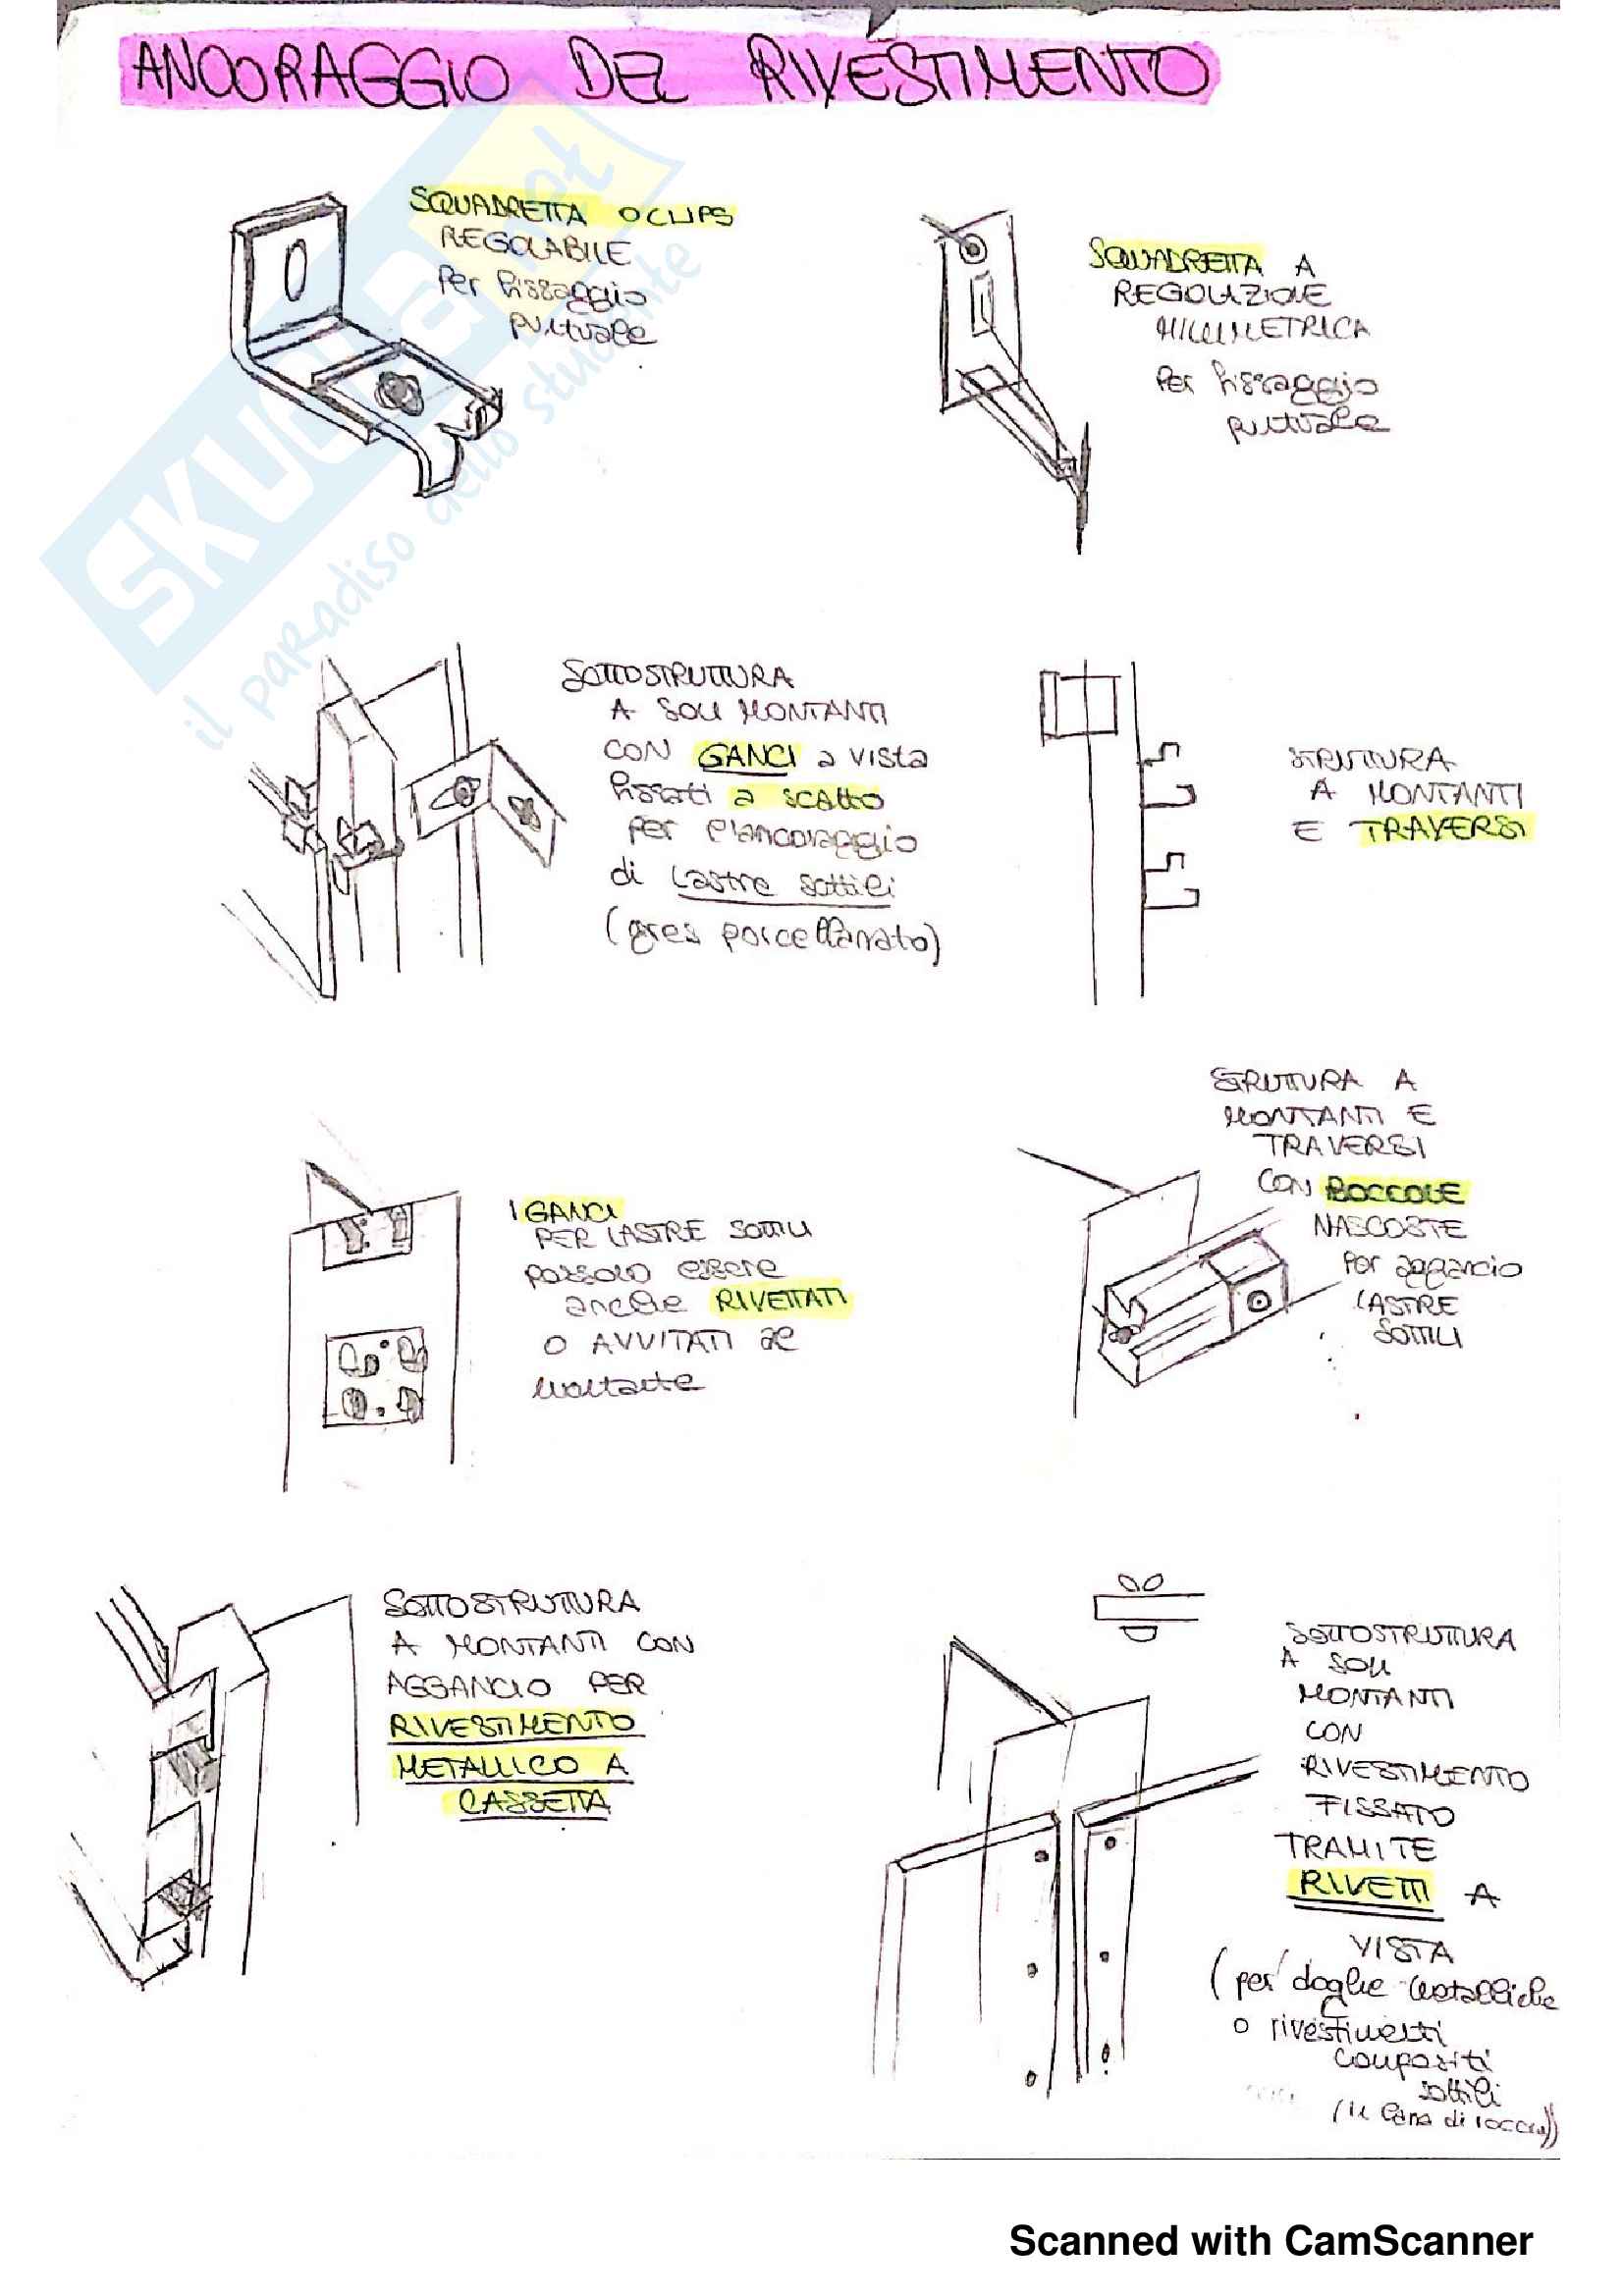 ANCORAGGIO DEL RIVESTIMENTO
SQUADRETTA O CLIPS
REGOLABILE
per fissaggio
puntuale
SQUADRETTA A
REGOLAZIONE
MILLIMETRICA
per fissaggio
puntuale
SKUOLA.net
il paradiso dello studente
SOTTOSTRUTTURA
A SOLI MONTANTI
CON GANCI a vista
fissati a scatto
per l'ancoraggio
di lastre sottili
(gres porcellanato)
STRUTTURA
A MONTANTI
E TRAVERSI
I GANCI
PER LASTRE SOTTILI
possono essere
anche RIVETTATI
O AVVITATI al
montante
STRUTTURA A
MONTANTI E
TRAVERSI
CON BOCCOLE
NASCOSTE
per aggancio
LASTRE
SOTTILI
SOTTOSTRUTTURA
A MONTANTI CON
AGGANCIO PER
RIVESTIMENTO
METALLICO A
CASSETTA
SOTTOSTRUTTURA
A SOLI
MONTANTI
CON
RIVESTIMENTO
FISSATO
TRAMITE
RIVETTI A
VISTA
(per doghe metalliche
o rivestimenti
compositi
sottili
(in lana di roccia))
Scanned with CamScanner